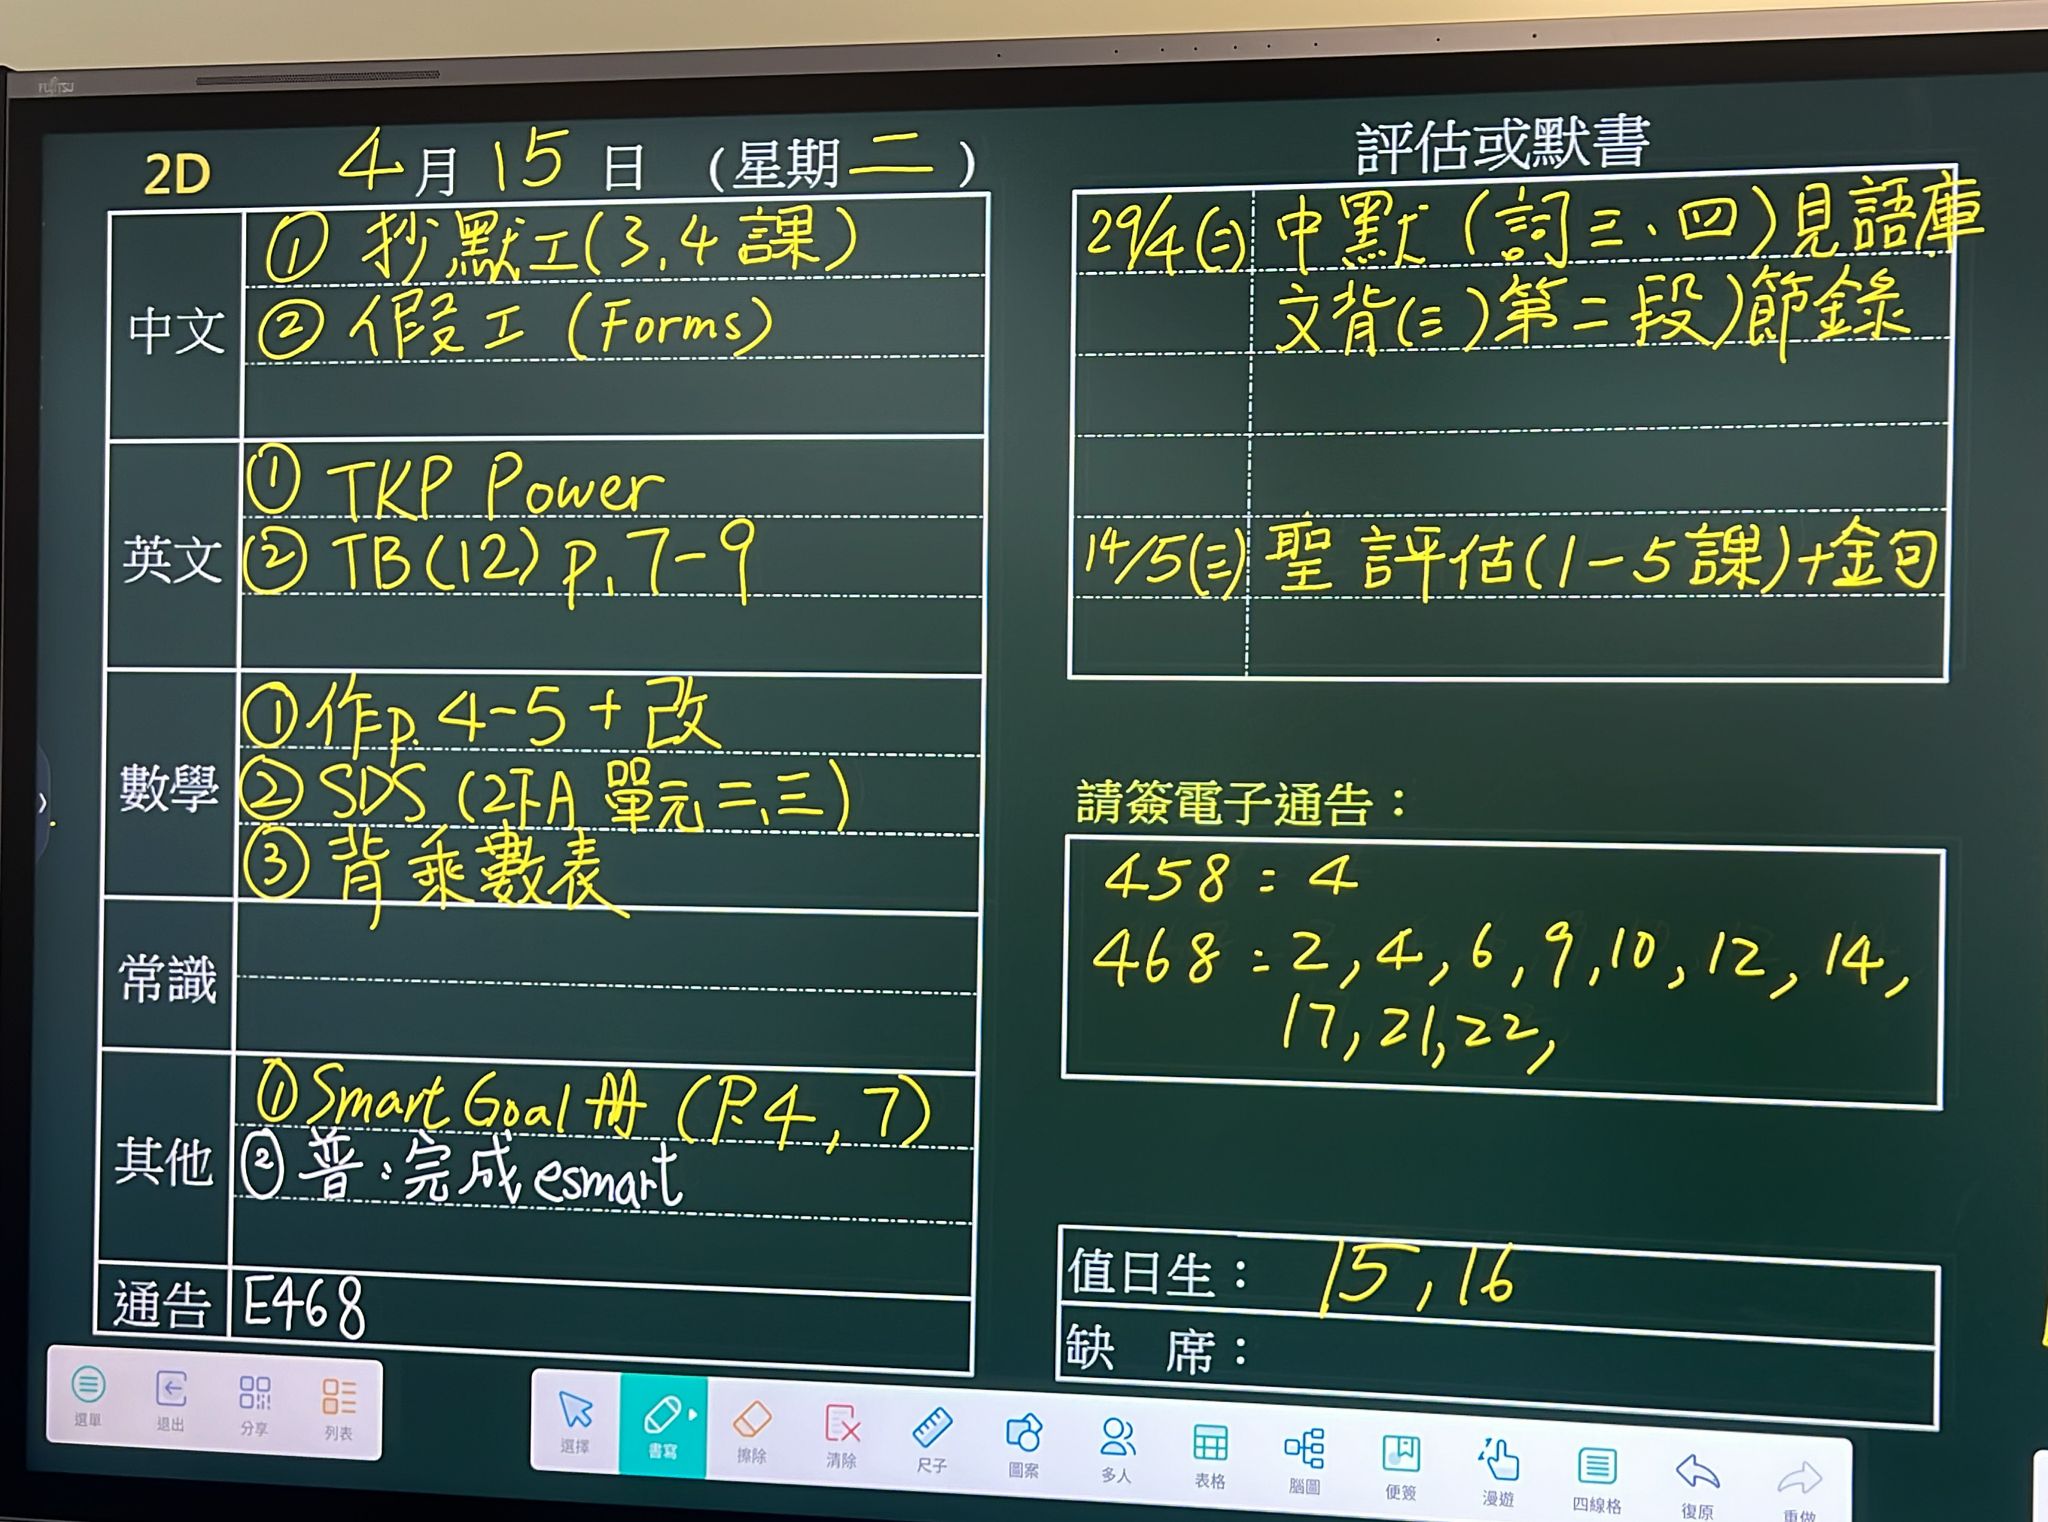 FUJITSU
2D 4月15日（星期二）
中文
① 抄默工(3,4課)
② 假工 (Forms)
英文
① TKP Power
② TB(12) p.7-9
數學
①作p.4-5+改
② SDS (2下A 單元二、三)
③ 背乘數表
常識
其他
①Smart Goal冊 (P.4, 7)
②普:完成esmart
通告 E468
評估或默書
29/4(二) 中默(詞三、四)見語庫
文背(三)第二段)節錄
14/5(三) 聖評估(1-5課)+金句
請簽電子通告：
458 : 4
468 : 2, 4, 6, 9, 10, 12, 14,
17, 21, 22,
值日生： 15, 16
缺 席：
選單 退出 分享 列表
選擇 書寫 擦除 清除 尺子 圖案 多人 表格 腦圖 便簽 漫遊 四線格 復原 重做